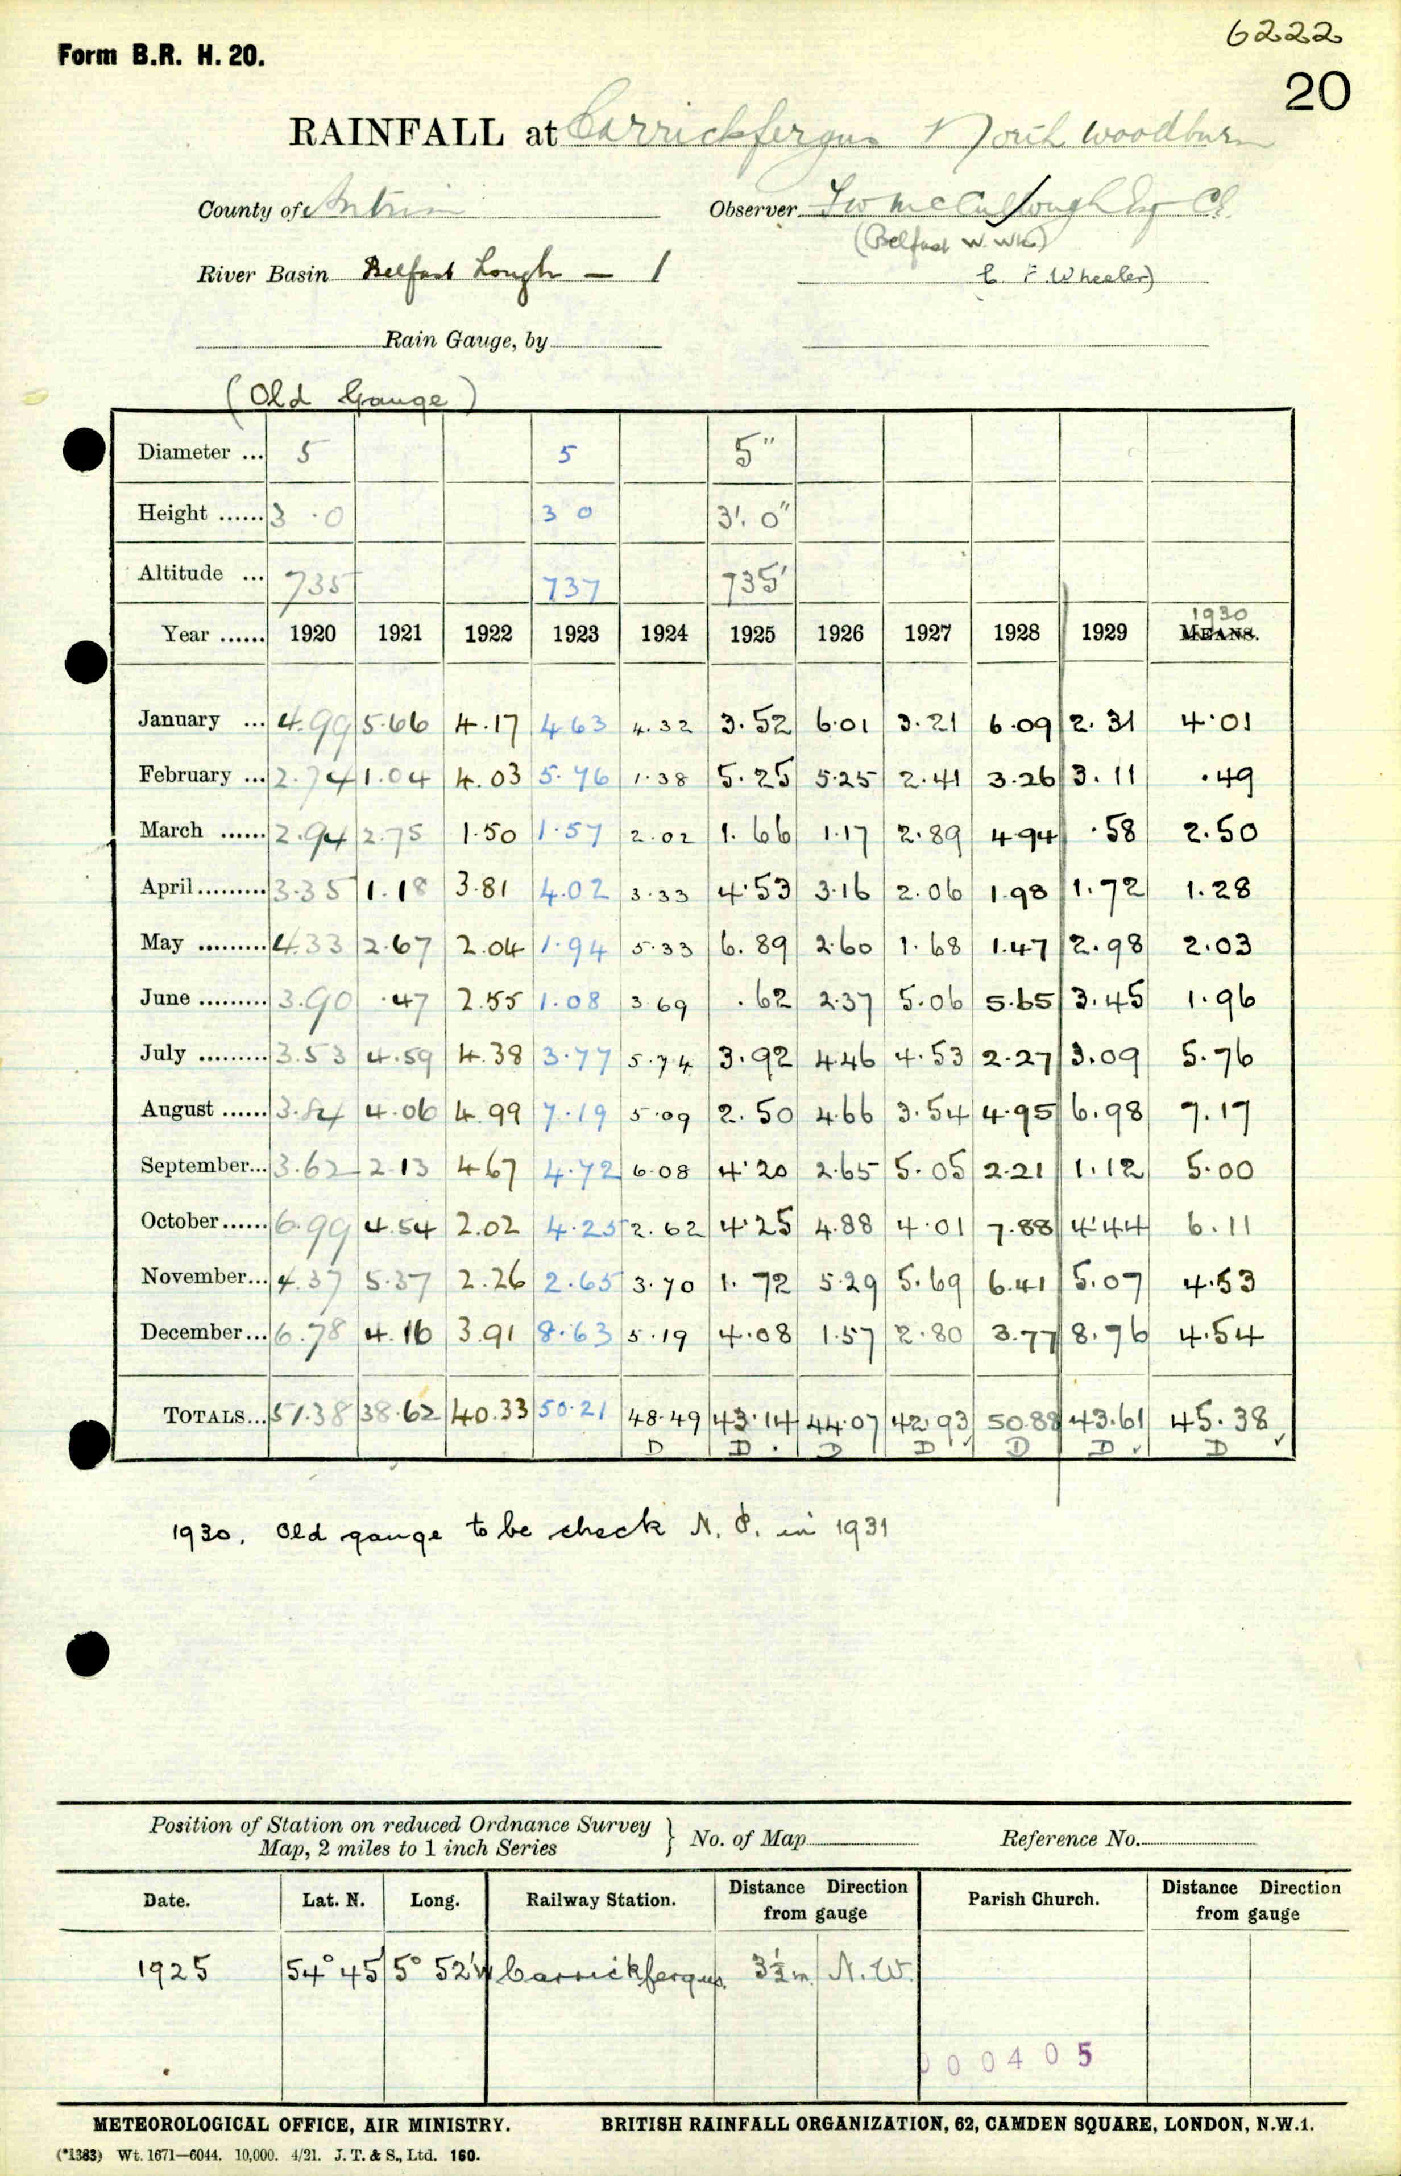 6222
Form B.R. H. 20.
20
RAINFALL at Carrickfergus North Woodburn
County of Antrim Observer
(Belfast W. Wks)
River Basin Belfast Lough — 1 C. F. Wheeler)
Rain Gauge, by
(Old Gauge)
Diameter ... 5 5 5"
Height ...... 3 .0 3 0 3'. 0"
Altitude ... 735 737 735'
1930
Year ...... 1920 1921 1922 1923 1924 1925 1926 1927 1928 1929 MEANS.
January ... 4.99 5.66 4.17 4.63 4.32 3.52 6.01 3.21 6.09 2.31 4.01
February ... 2.74 1.04 4.03 5.76 1.38 5.25 5.25 2.41 3.26 3.11 .49
March ...... 2.94 2.75 1.50 1.57 2.02 1.66 1.17 2.89 4.94 .58 2.50
April ......... 3.35 1.18 3.81 4.02 3.33 4.53 3.16 2.06 1.98 1.72 1.28
May ......... 4.33 2.67 2.04 1.94 5.33 6.89 2.60 1.68 1.47 2.98 2.03
June ......... 3.90 .47 2.55 1.08 3.69 .62 2.37 5.06 5.65 3.45 1.96
July ......... 3.53 4.59 4.38 3.77 5.74 3.92 4.46 4.53 2.27 3.09 5.76
August ...... 3.84 4.06 4.99 7.19 5.09 2.50 4.66 3.54 4.95 6.98 7.17
September... 3.62 2.13 4.67 4.72 6.08 4.20 2.65 5.05 2.21 1.12 5.00
October...... 6.99 4.54 2.02 4.25 2.62 4.25 4.88 4.01 7.88 4.44 6.11
November... 4.37 5.37 2.26 2.65 3.70 1.72 5.29 5.69 6.41 5.07 4.53
December... 6.78 4.16 3.91 8.63 5.19 4.08 1.57 2.80 3.77 8.76 4.54
TOTALS... 51.38 38.62 40.33 50.21 48.49 43.14 44.07 42.93 50.88 43.61 45.38
D D. D D✓ D D✓ D✓
1930. Old gauge to be check N. in 1931
Position of Station on reduced Ordnance Survey
Map, 2 miles to 1 inch Series } No. of Map Reference No.
Date. Lat. N. Long. Railway Station. Distance Direction from gauge Parish Church. Distance Direction from gauge
1925 54° 45' 5° 52'W Carrickfergus 3½ m. N.W.
000405
METEOROLOGICAL OFFICE, AIR MINISTRY. BRITISH RAINFALL ORGANIZATION, 62, CAMDEN SQUARE, LONDON, N.W.1.
(*1383) Wt. 1671—6044. 10,000. 4/21. J. T. & S., Ltd. 160.